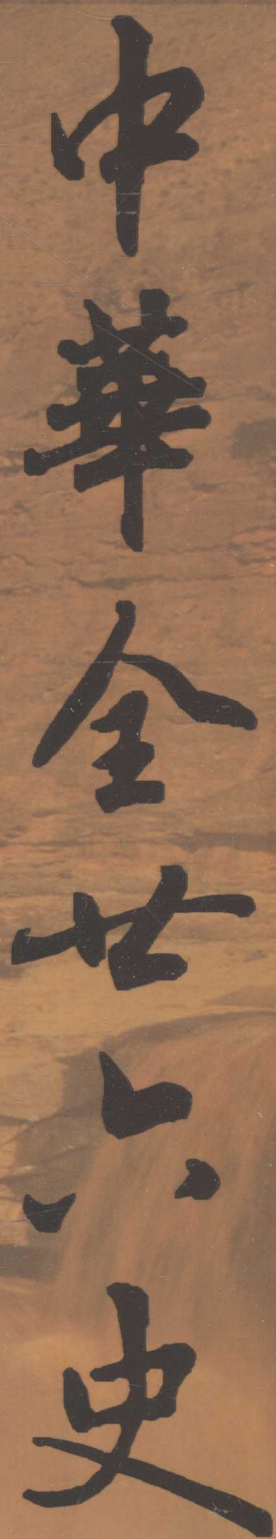 中華全廿六史